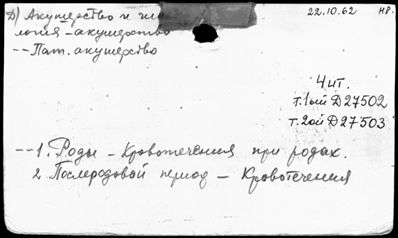 Д) Акушерство и
логия - акушерство
-- Пат. акушерство
22.10.62 НВ.
Чит.
т.1ый Д27502
т.2ой Д27503
-- 1. Роды - Кровотечения при родах.
2. Послеродовой период - Кровотечения